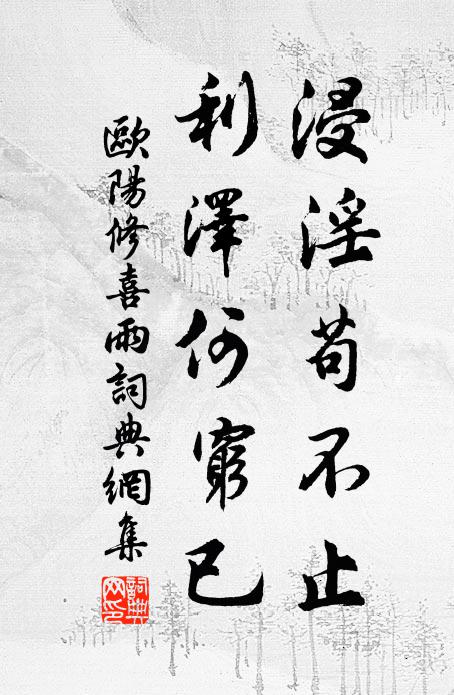 浸淫苟不止
利澤何窮已
歐陽修喜雨詞典網集
詞典網印